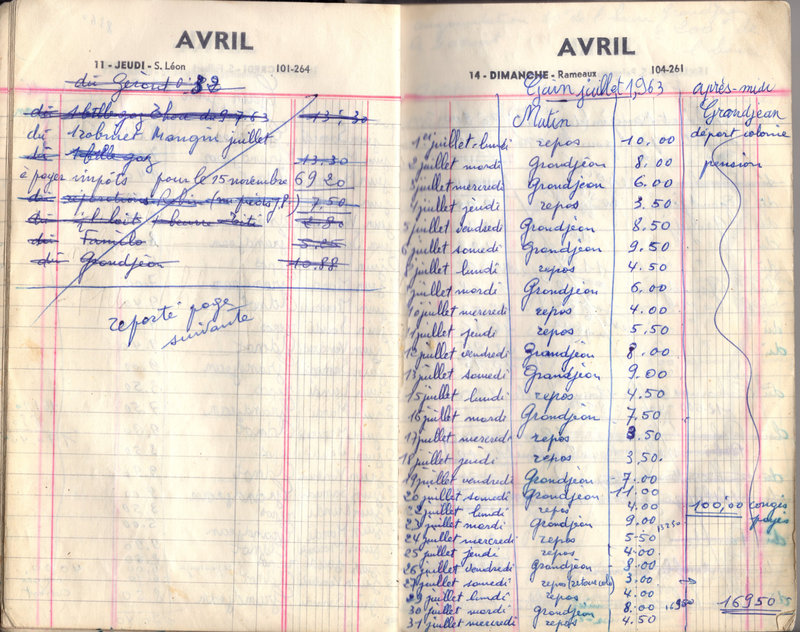 AVRIL
11 - JEUDI - S. Léon 101-264
du Gérard
13,30
du robinet Mangin juillet
du 1 bille gaz 13.30
à payer impôts pour le 15 novembre 69 20
du réparations 7,50
du
du Familo 5.25
du Grandjean 10,88
reporté page
suivante
AVRIL
14 - DIMANCHE - Rameaux 104-261
Gain juillet 1963 après-midi
Matin Grandjean
départ colonie
1er juillet lundi repos 10,00
2 juillet mardi Grandjean 8.00 pension
3 juillet mercredi Grandjean 6.00
4 juillet jeudi repos 3.50
5 juillet vendredi Grandjean 8.50
6 juillet samedi Grandjean 9.50
8 juillet lundi repos 4.50
9 juillet mardi Grandjean 6.00
10 juillet mercredi repos 4.00
11 juillet jeudi repos 5.50
12 juillet vendredi Grandjean 8.00
13 juillet samedi Grandjean 9.00
15 juillet lundi repos 4.50
16 juillet mardi Grandjean 7.50
17 juillet mercredi repos 3.50
18 juillet jeudi repos 3.50
19 juillet vendredi Grandjean 7.00
20 juillet samedi Grandjean 11.00
22 juillet lundi repos 4.00 100,00 congés
23 juillet mardi Grandjean 9.00 payés
24 juillet mercredi repos 5.50
25 juillet jeudi repos 4.00
26 juillet vendredi Grandjean 8.00
27 juillet samedi repos (retour colo) 3.00 →
29 juillet lundi repos 4.00
30 juillet mardi Grandjean 8.00 16950 16950
31 juillet mercredi repos 4.50